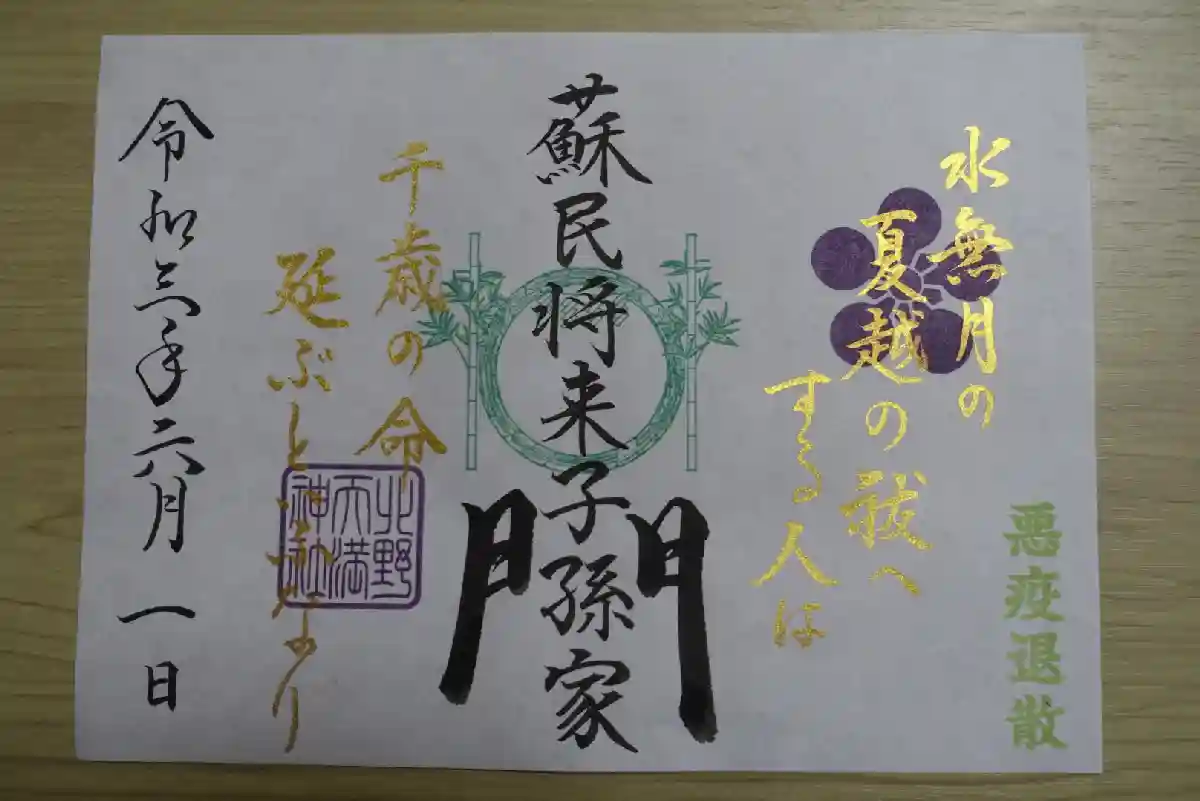 悪疫退散
水無月の
夏越の祓へ
する人は
蘇民将来子孫家
門
千歳の命
延ぶと
なり
北野
天満
神社
令和三年六月一日